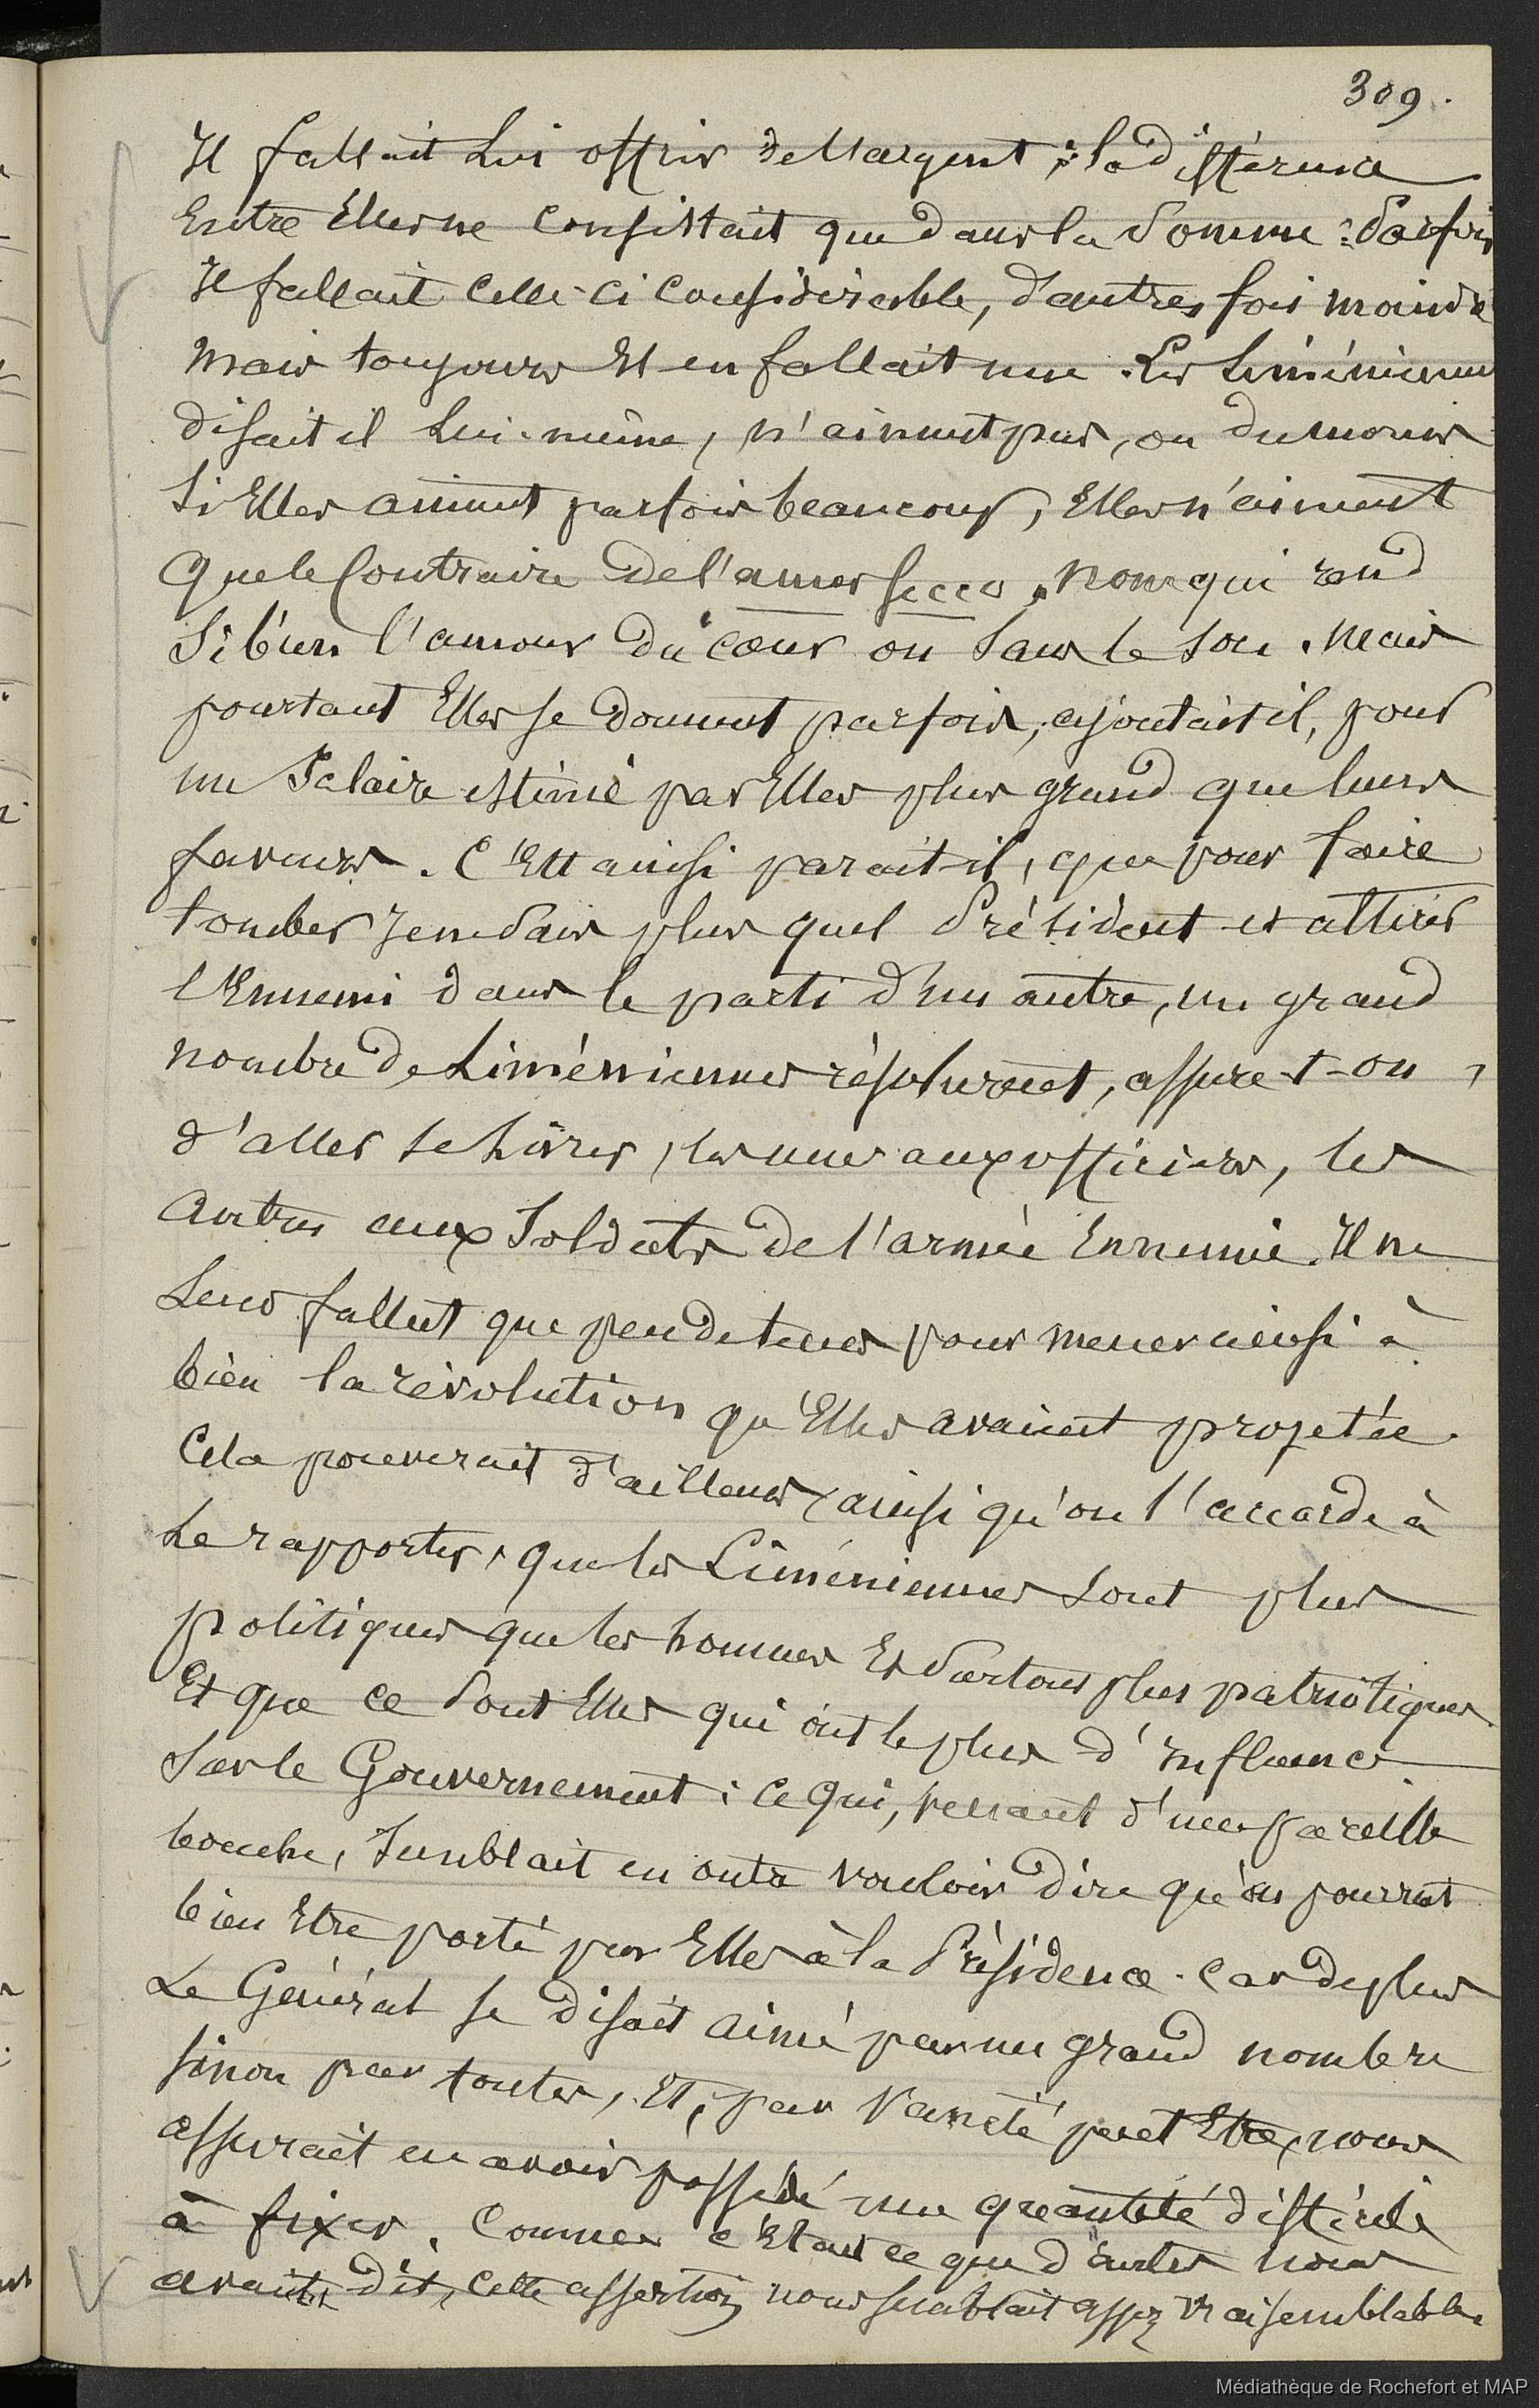 309.
Il fallait Lui offrir de l'argent ; la différence
Entre Elles ne Consistait que dans la Somme : Parfois
Il fallait Celle-Ci Considérable, d'autres fois moindre
mais toujours Il en fallait une. Les Liméniennes
disait il Lui-même, n'aiment pas, ou du moins
Si Elles aiment parfois beaucoup, Elles n'aiment
Que le Contraire de l'amor secco, nom qui rend
Si bien l'amour du Cœur où Sans le Sou. Mais
pourtant Elles se donnent parfois, ajoutait il, pour
un Salaire estimé par Elles plus grand que leurs
faveurs. C'Est ainsi parait-il, que pour faire
tomber je ne Sais plus quel Président et attirer
l'Ennemi dans le parti d'un autre, un grand
nombre de Liméniennes résolurent, assure-t-on,
d'aller se Livrer, les unes aux officiers, les
autres aux Soldats de l'armée Ennemie. Il ne
Leur fallut que peu de tems pour mener ainsi à
bien la révolution qu'Elles avaient projetée.
Cela prouverait d'ailleurs, ainsi qu'on l'accorde à
Le rapporter, que les Liméniennes Sont plus
politiques que les hommes Et Surtout plus patriotiques
Et que ce Sont Elles qui ont le plus d'Influence
Sur le Gouvernement : Ce Qui, venant d'une pareille
bouche, Semblait en outre vouloir dire qu'on pourrait
bien Etre porté par Elles à la Présidence. Car de plus
Le Général se disait aimé par un grand nombre
Sinon par toutes, Et, par Vanité peut Etre, nous
assurait en avoir possédé une quantité difficile
à fixer. Comme c'Etait ce que d'autres nous
avaient dit, cette assertion nous semblait assez vraisemblable.
Médiathèque de Rochefort et MAP